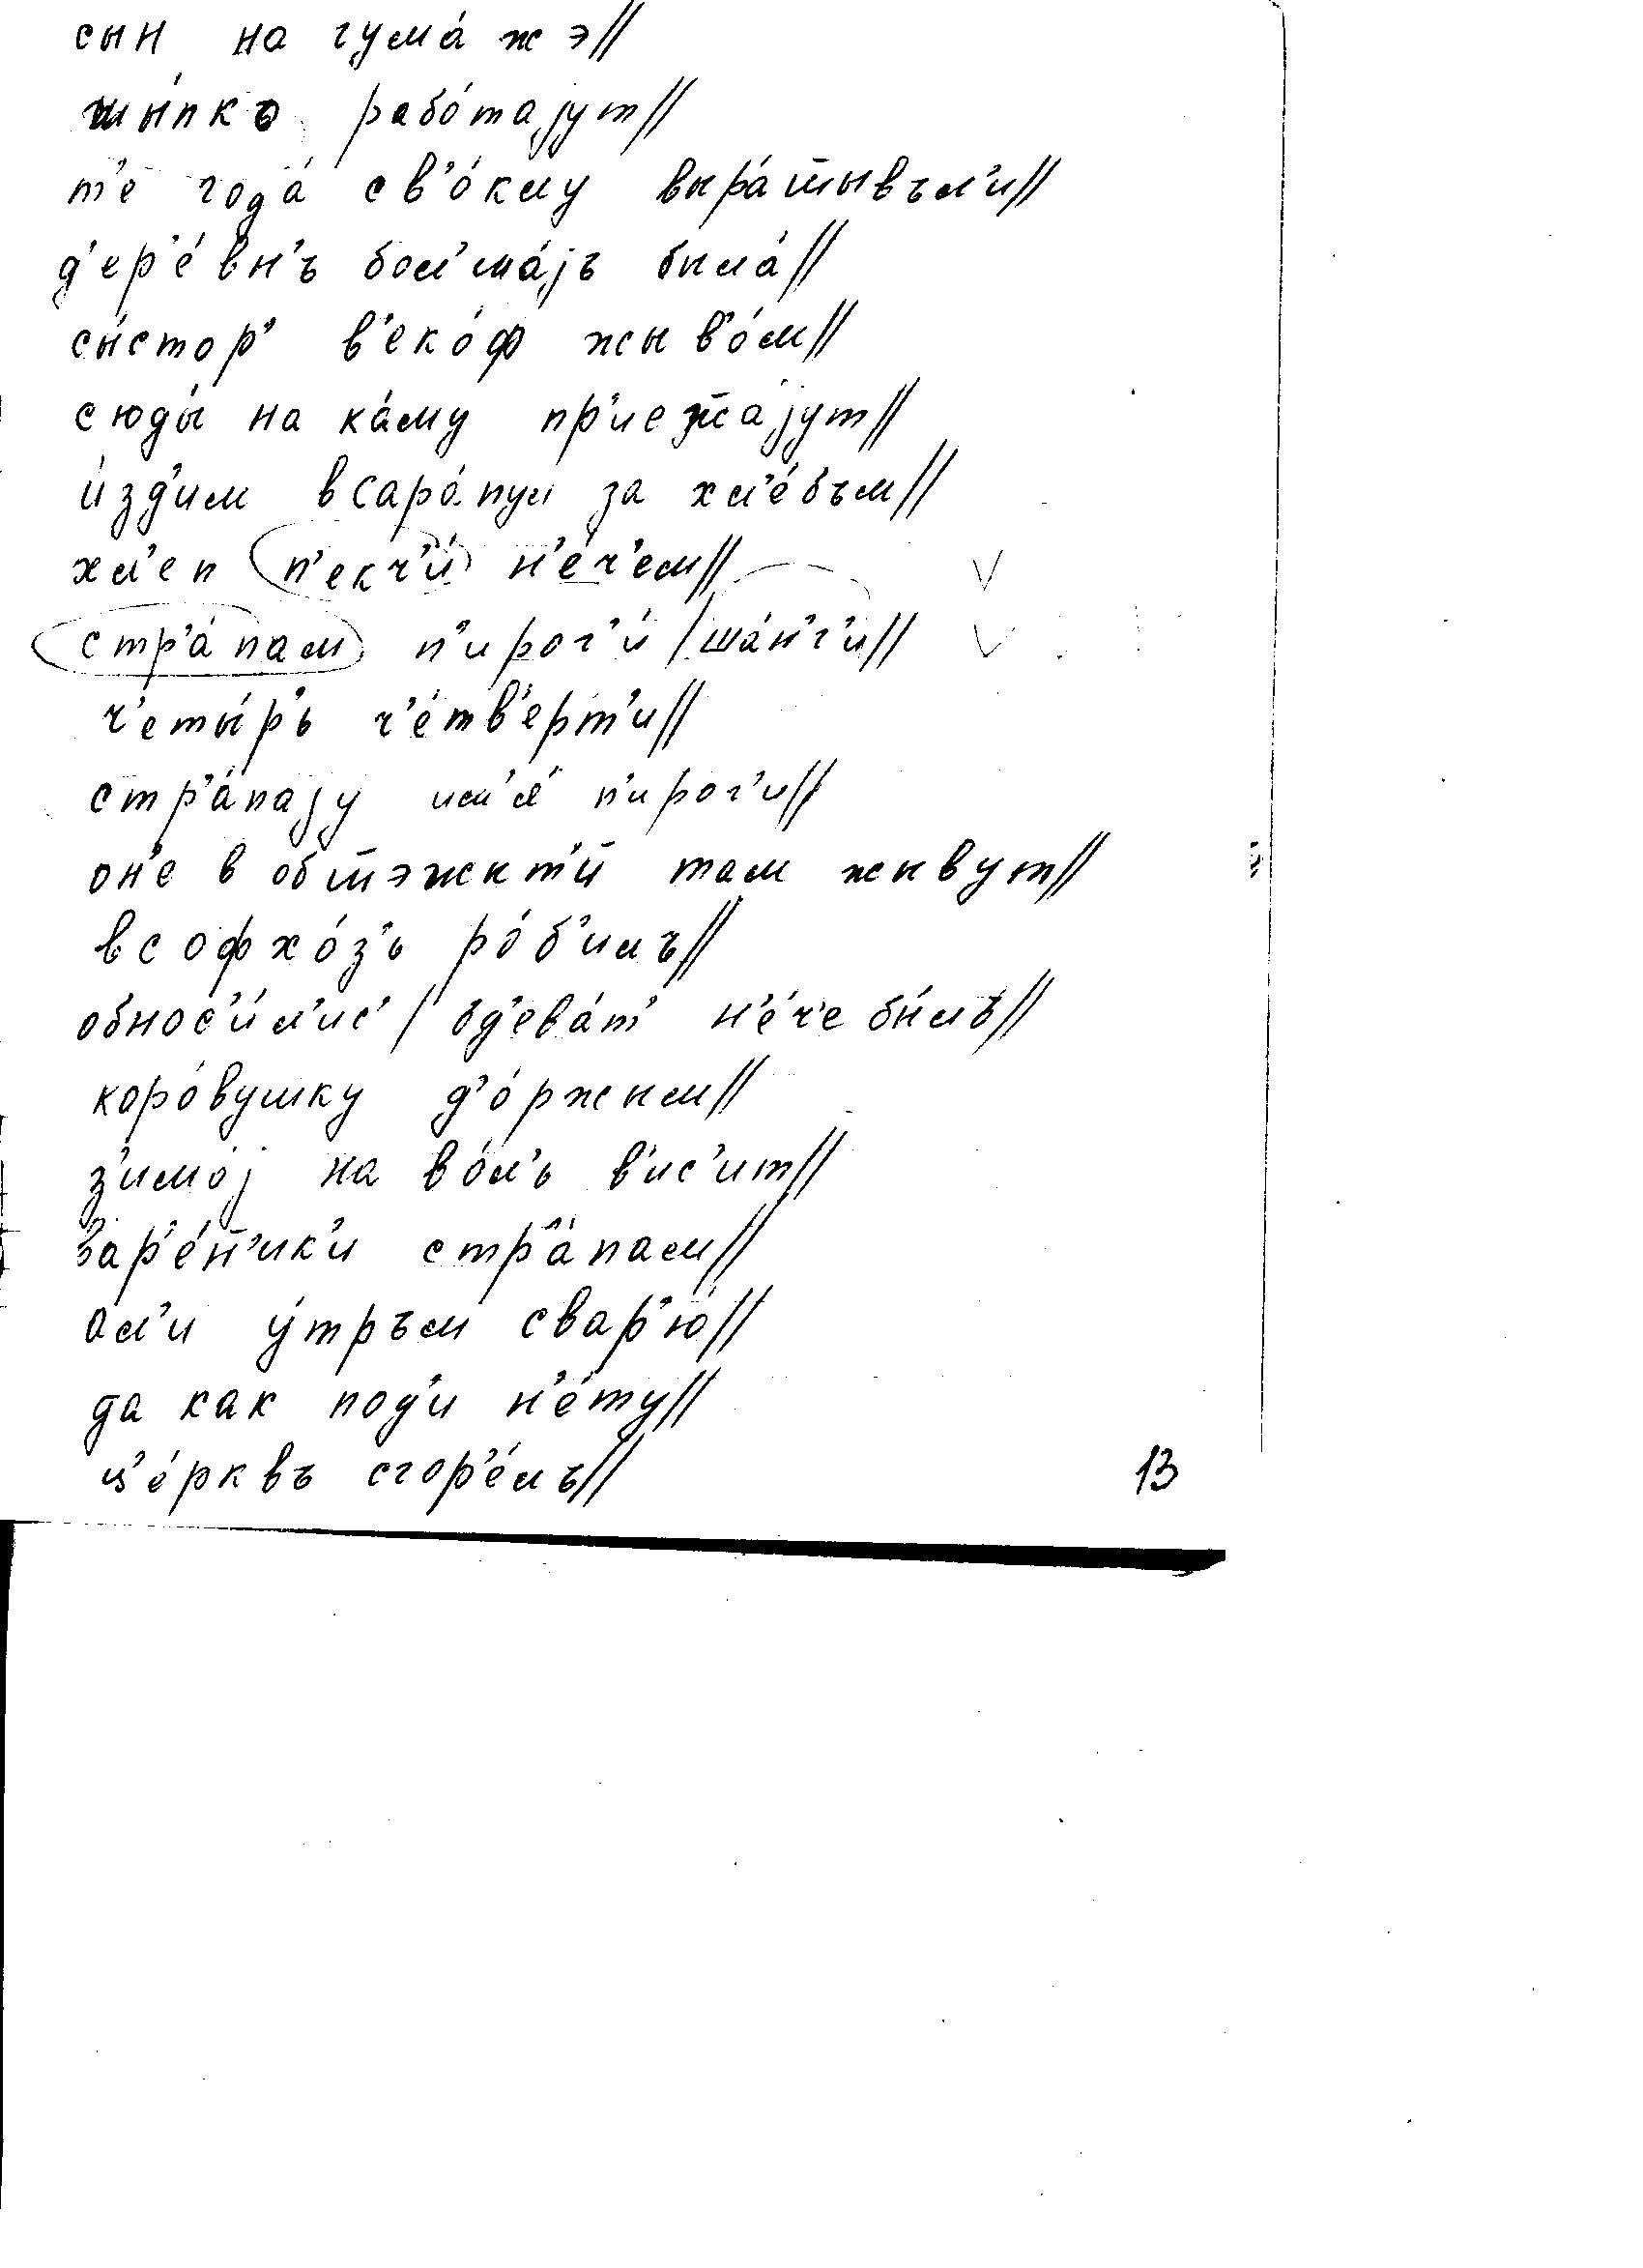 сын на гума́жэ//
шы́пкъ рабо́тајут//
т'е года́ св'о́клу выра́шшывъл'и//
д'ер'е́вн'ъ бол'ша́јъ была́//
сы́стор' в'еко́ф жыв'о́м//
сюды́ на ка́му пр'иежжа́јут//
и́зд'им всара́пул за хл'е́бъм//
хл'еп п'екч'и́ н'е́ч'ем//
стр'а́пам п'ирог'и́ / ша́н'г'и//
ч'еты́р'ь ч'е́тв'ерт'и//
стр'а́пају ил'и́ п'ирог'и//
он'е в обшшэжыт'ии там жывут//
всофхо́з'ь ро́б'илъ//
обнос'и́л'ис' / од'ева́т' н'е́ч'е бы́лъ//
коро́вушку д'о́ржым//
з'имо́ј на во́л'ь в'ис'ит//
вар'е́н'ик'и стр'а́пам//
ал'и у́тръм свар'ю́//
да как под'и н'е́ту//
ц'е́рквъ сгор'е́лъ//
13